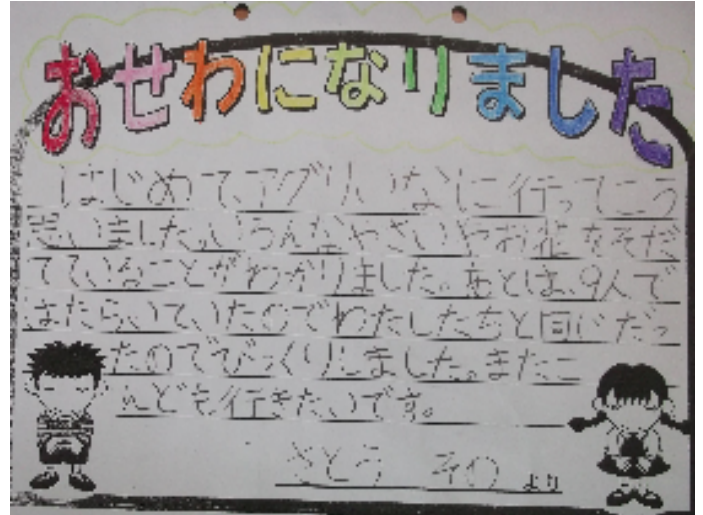 おせわになりました
はじめてアグリいなに行ってこう
思いました。いろんなやさいやお花をそだ
てていることがわかりました。あとは、9人で
はたらいていたのでわたしたちと同じだっ
たのでびっくりしました。またこ
んども行きたいです。
さとう より